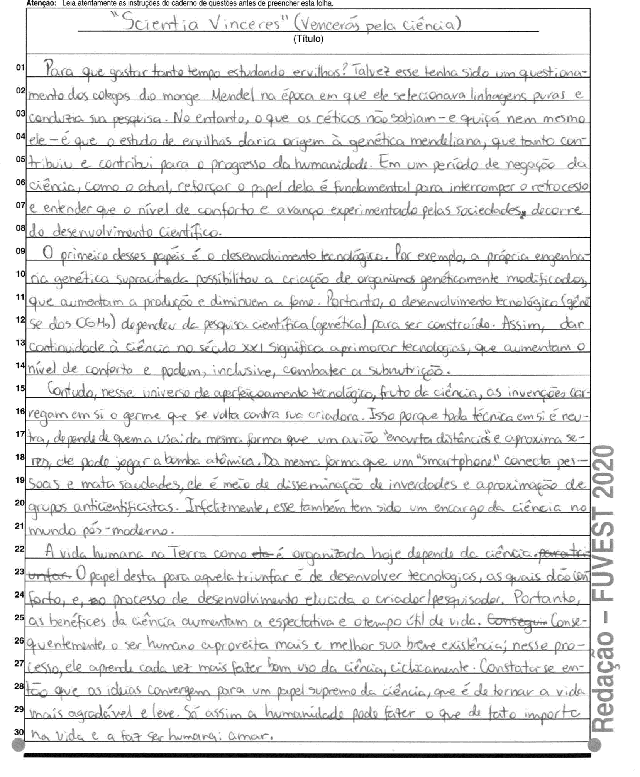 Atenção: Leia atentamente as instruções do caderno de questões antes de preencher esta folha.
"Scientia Vinceres" (Vencerás pela ciência)
(Título)
01 Para que gastar tanto tempo estudando ervilhas? Talvez esse tenha sido um questiona-
02 mento dos colegas do monge Mendel na época em que ele selecionava linhagens puras e
03 conduzia sua pesquisa. No entanto, o que os céticos não sabiam - e quiçá nem mesmo
04 ele - é que o estudo de ervilhas daria origem à genética mendeliana, que tanto con-
05 tribuiu e contribui para o progresso da humanidade. Em um período de negação da
06 ciência, como o atual, reforçar o papel dela é fundamental para interromper o retrocesso
07 e entender que o nível de conforto e avanço experimentado pelas sociedades decorre
08 do desenvolvimento científico.
09 O primeiro desses papéis é o desenvolvimento tecnológico. Por exemplo, a própria engenha-
10 ria genética supracitada possibilitou a criação de organismos genéticamente modificados,
11 que aumentam a produção e diminuem a fome. Portanto, o desenvolvimento tecnológico (gêne
12 se dos OGMs) depender da pesquisa científica (genética) para ser construído. Assim, dar
13 continuidade à ciência no século XXI significa aprimorar tecnologias, que aumentam o
14 nível de conforto e podem, inclusive, combater a subnutrição.
15 Contudo, nesse universo de aperfeiçoamento tecnológico, fruto da ciência, as invenções car-
16 regam em si o germe que se volta contra sua criadora. Isso porque toda técnica em si é neu-
17 tra, depende de quem a usa: da mesma forma que um avião "encurta distâncias" e aproxima se-
18 res, ele pode jogar a bomba atômica. Da mesma forma que um "smartphone" conecta pes-
19 soas e mata saudades, ele é meio de disseminação de inverdades e aproximação de
20 grupos anticientificistas. Infelizmente, esse também tem sido um encargo da ciência no
21 mundo pós-moderno.
22 A vida humana na Terra como ela é organizada hoje depende da ciência. para tri
23 unfar. O papel desta para aquela triunfar é de desenvolver tecnologias, as quais dão con
24 forto, e, no processo de desenvolvimento elucida o criador/pesquisador. Portanto,
25 as benéfices da ciência aumentam a espectativa e o tempo útil de vida. Consequ Conse-
26 quentemente, o ser humano aproveita mais e melhor sua breve existência; nesse pro-
27 cesso, ele aprende cada vez mais fazer bom uso da ciência, ciclicamente. Constatar-se en-
28 tão que as ideias convergem para um papel supremo da ciência, que é de tornar a vida
29 mais agradável e leve. Só assim a humanidade pode fazer o que de fato importa
30 na vida e a faz ser humana: amar.
Redação – FUVEST 2020